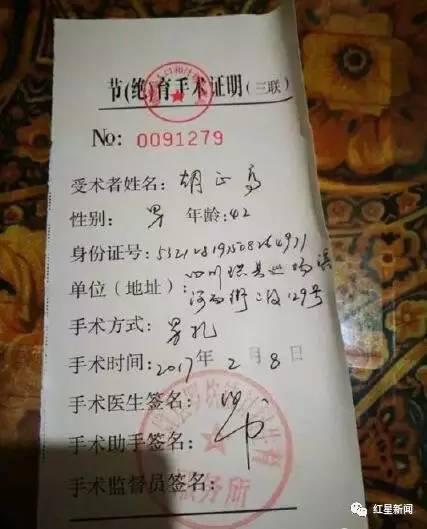 节(绝)育手术证明(三联)
No: 0091279
受术者姓名: 胡正高
性别: 男 年龄: 42
身份证号:
单位(地址): 四川珙县巡场镇
河西街二段129号
手术方式: 男扎
手术时间: 2017年2月8日
手术医生签名:
手术助手签名:
手术监督员签名:
服务所
红星新闻